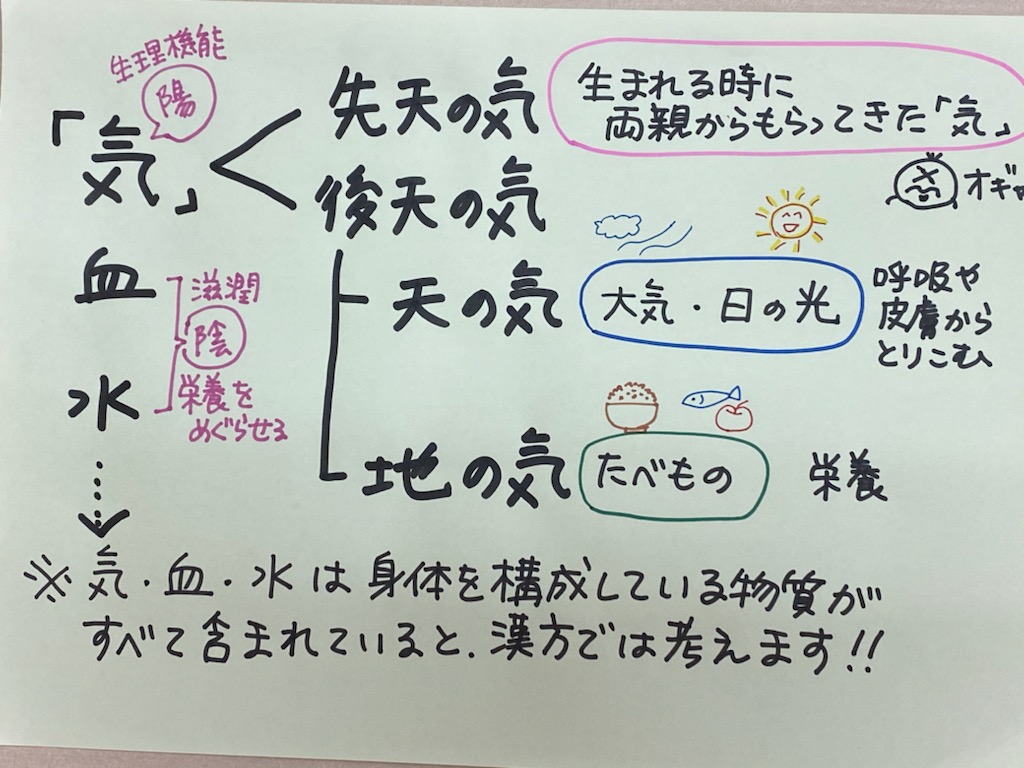 生理機能
陽
「気」
先天の気
生まれる時に
両親からもらってきた「気」
オギャ
後天の気
天の気
大気・日の光
呼吸や
皮膚から
とりこむ
地の気
たべもの
栄養
血
水
滋潤
陰
栄養を
めぐらせる
※気・血・水は身体を構成している物質が
すべて含まれていると、漢方では考えます!!